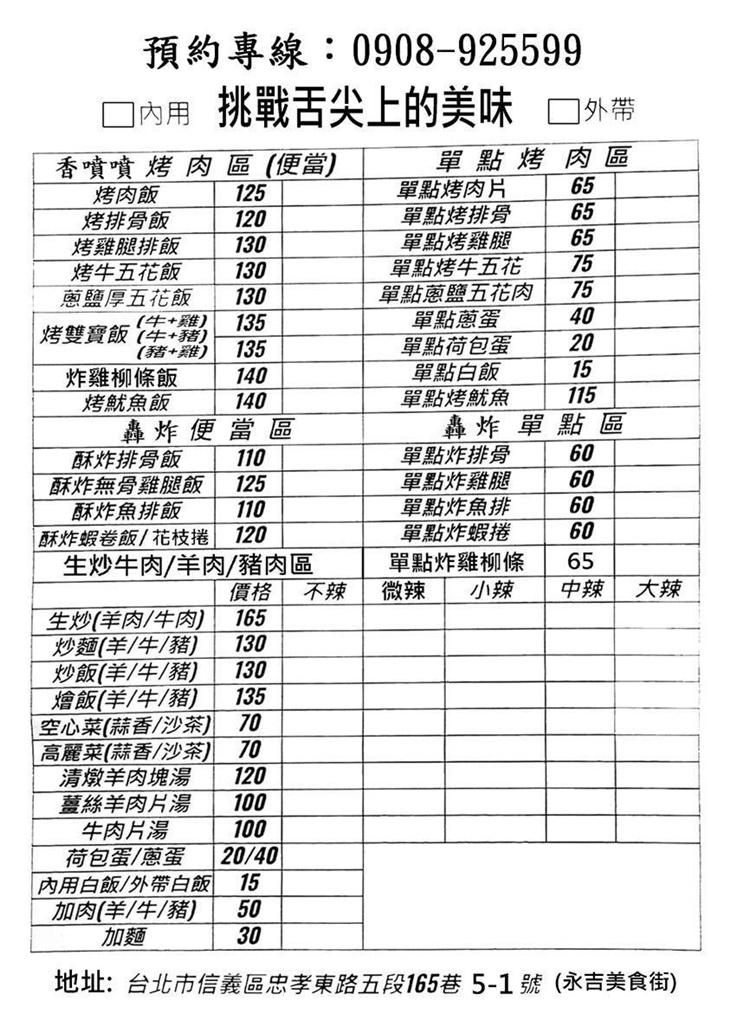 預約專線：0908-925599
□內用 挑戰舌尖上的美味 □外帶
香噴噴 烤 肉 區 (便當) 單 點 烤 肉 區
烤肉飯 125 單點烤肉片 65
烤排骨飯 120 單點烤排骨 65
烤雞腿排飯 130 單點烤雞腿 65
烤牛五花飯 130 單點烤牛五花 75
蔥鹽厚五花飯 130 單點蔥鹽五花肉 75
烤雙寶飯 (牛+雞) (牛+豬) (豬+雞) 135 單點蔥蛋 40
135 單點荷包蛋 20
炸雞柳條飯 140 單點白飯 15
烤魷魚飯 140 單點烤魷魚 115
轟 炸 便 當 區 轟 炸 單 點 區
酥炸排骨飯 110 單點炸排骨 60
酥炸無骨雞腿飯 125 單點炸雞腿 60
酥炸魚排飯 110 單點炸魚排 60
酥炸蝦卷飯/花枝捲 120 單點炸蝦捲 60
生炒牛肉/羊肉/豬肉區 單點炸雞柳條 65
價格 不辣 微辣 小辣 中辣 大辣
生炒(羊肉/牛肉) 165
炒麵(羊/牛/豬) 130
炒飯(羊/牛/豬) 130
燴飯(羊/牛/豬) 135
空心菜(蒜香/沙茶) 70
高麗菜(蒜香/沙茶) 70
清燉羊肉塊湯 120
薑絲羊肉片湯 100
牛肉片湯 100
荷包蛋/蔥蛋 20/40
內用白飯/外帶白飯 15
加肉(羊/牛/豬) 50
加麵 30
地址: 台北市信義區忠孝東路五段165巷 5-1 號 (永吉美食街)